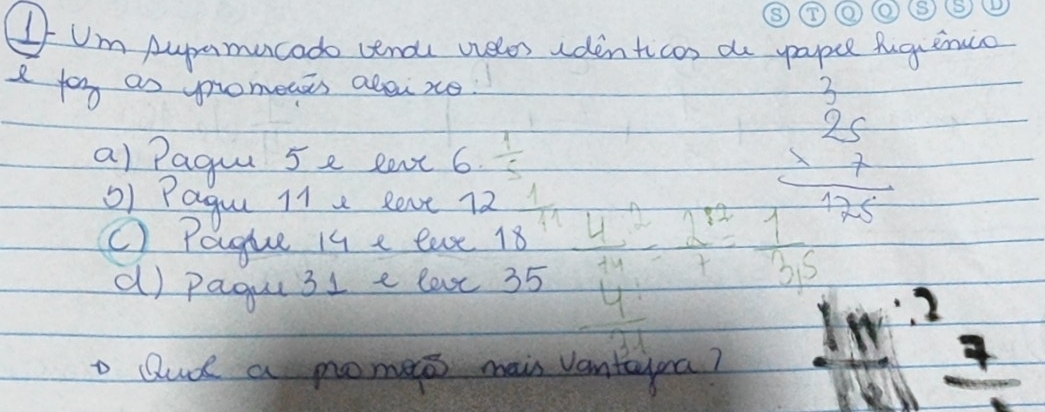 S T Q Q S S D
1 - Um supermercado vende rolos idênticos de papel higiênico
e faz as promoções abaixo:
3
25
x 7
175
a) Pague 5 e leve 6 1/5
b) Pague 11 e leve 12 1/11
c) Pague 14 e leve 18 4/14 :2 = 2/7 :2 = 1/3,5
d) Pague 31 e leve 35 4/31
Qual a promoção mais vantajosa?
:2 7